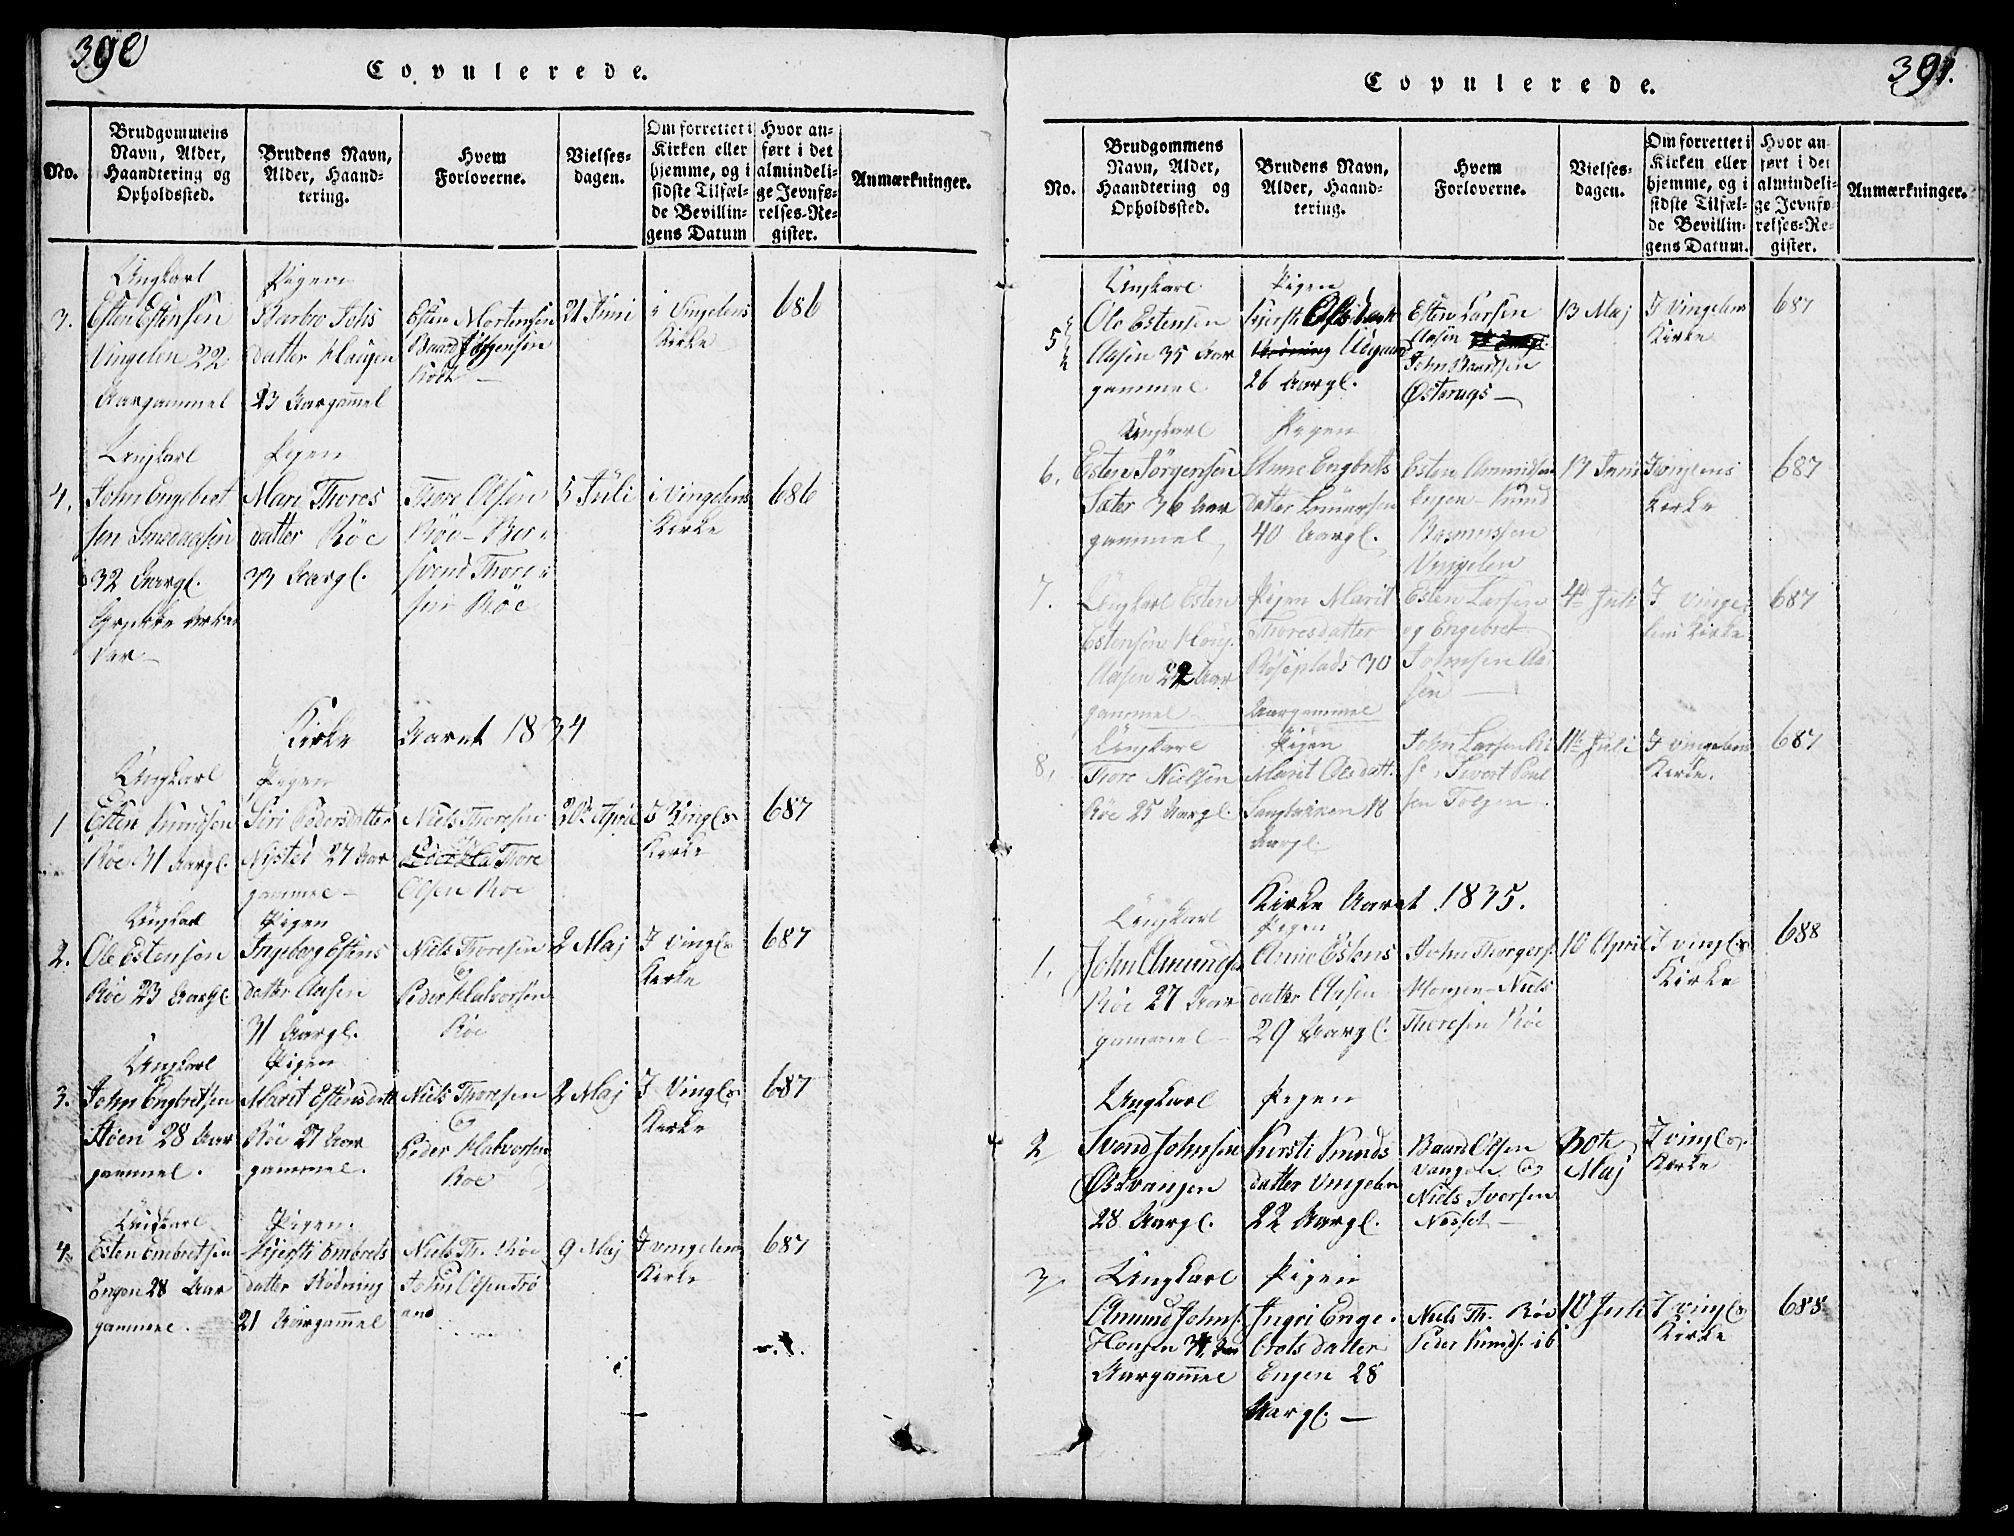 390
Copulerede.
No.
Brudgommens
Navn, Alder,
Haandtering og
Opholdssted.
Brudens Navn,
Alder, Haand-
tering.
Hvem
Forloverne.
Vielses-
dagen.
Om forrettet i
Kirken eller
hjemme, og i
sidste Tilfæl-
de Bevillin-
gens Datum
Hvor an-
ført i det
almindeli-
ge Jevnfø-
relses-Re-
gister.
Anmærkninger.
3.
Ungkarl
Esten Estensen
Vingelen 22
Aargammel
Pigen
Johs
datter Haugen
23 Aargamel
Esten Mortensen
Baard Jørgensen
21 Juni
i Vingelens
Kirke
686
4.
Ungkarl
John Engebret
sen Smedaasen
32 Aargl.
Pigen
Mari Thores
datter Röe
33 Aargl.
Thore Olsen
Röe - Ber
svend Thore
sen Röe
5 Juli
i Vingelens
Kirke
686
Kirke Aaret 1834
1
Ungkarl
Esten Knudsen
Röe 31 Aargl.
Pigen
Siri Pedersdatter
Nystet 27 Aar
gammel
Niels Thoresen
Thore
Olsen Röe
20de April
I Vingl.s
Kirke
687
2.
Ungkarl
Ole Estensen
Röe 23 Aargl.
Pigen
Ingeborg Estens
datter Aasen
31 Aargl.
Niels Thoresen
og
Peder Halvorsen
Röe
2 Maj
I Vingl.s
Kirke
687
3.
Ungkarl
John Engbretsen
Moen 28 Aar
gammel.
Pigen
Marit Estensdatt
Röe 27 Aar
gammel.
Niels Thoresen
og
Peder Halvorsen
Röe
2 Maj
I Vingl.s
Kirke
687
4.
Ungkarl
Esten Embretsen
Engen 28 Aar
gammel.
Pigen
Kjersti Embrets
datter Rödning
21 Aargammel
Niels Th. Röe
John Olsen Trö
and
9 Maj
I Vingelens
Kirke
687
391.
Copulerede.
No.
Brudgommens
Navn, Alder,
Haandtering og
Opholdssted.
Brudens Navn,
Alder, Haand-
tering.
Hvem
Forloverne.
Vielses-
dagen.
Om forrettet i
Kirken eller
hjemme, og i
sidste Tilfæl-
de Bevillin-
gens Datum.
Hvor an-
ført i det
almindeli-
ge Jevnfø-
relses-Re-
gister.
Anmærkninger.
5
Ungkarl
Ole Estensen
Aasen 35 Aar
gammel
Pigen
Kjersti
26 Aargl.
Esten Larsen
Aasen
John Baardsen
Østerugs
13 Maj
I Vingelens
Kirke
687
6.
Ungkarl
Esten Jörgensen
Sæter 36 Aar
gammel
Pigen
Anne Engbrets
datter
40 Aargl.
Esten Amundsen
Engen Knud
Rasmussen
Vingelen
13 Juni
I vinglens
Kirke
687
7.
Ungkarl Esten
Estensen Houg
Aasen 22 Aar
gammel
Pigen Marit
Thoresdatter
Röseplads 30
Aargammel
Esten Larsen
og Engebret
Johnsen Aa
sen
4de Juli
I Vinge
lens Kirke
687
8.
Ungkarl
Thore Nielsen
Röe 25 Aargl.
Pigen
Marit Olsdatt.
18
Aargl.
John Larsen
Sivert Poul
sen Tolgen
11te Juli
I Vingelens
Kirke.
687
Kirke Aaret 1835.
1.
Ungkarl
John Amunds.
Röe 27 Aar
gammel
Pigen
Anne Estens
datter Aasen
29 Aargl.
John Thorgers.
Horgen - Niels
Thoresen Röe
10 April
I vingl.s
Kirke
688
2
Ungkarl
Svend Johnsen
Østvangen
28 Aargl.
Pigen
Kersti Knuds
datter Vingelen
22 Aargl.
Baard Olsen
Vangen og
Niels Iversen
Nesset
30te
Maj
I vingl.s
Kirke
3
Ungkarl
Amund Johns.
Aargammel
Pigen
Ingri Enge-
bretsdatter
Engen 28
Aargl.
Niels Th. Röe
Peder Knuds. ib
10 Juli
I vingl.s
Kirke
688